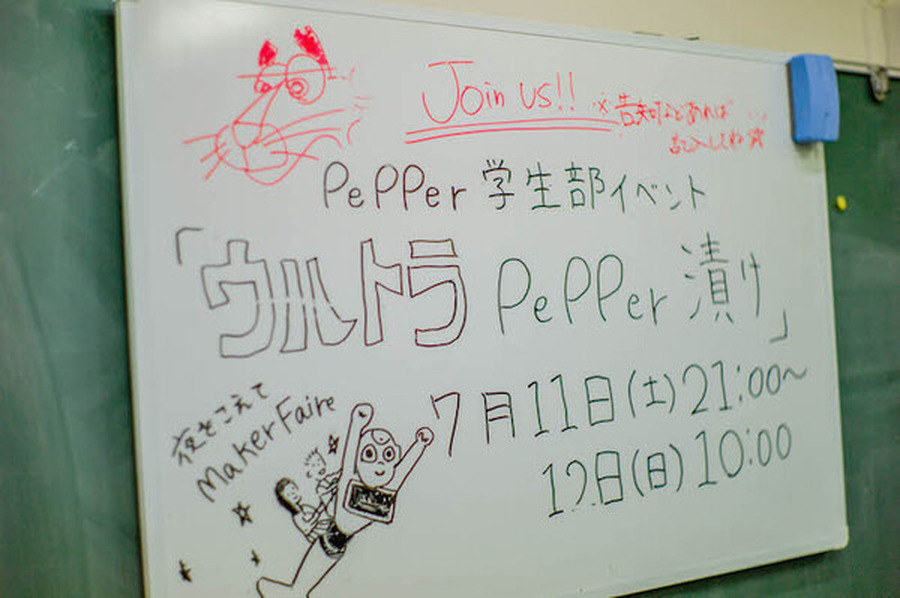 Join us!!
※告知などあれば
記入してね
Pepper 学生部イベント
「ウルトラ Pepper 漬け」
7月11日(土)21:00～
12日(日)10:00
夜をこえて
Maker Faire